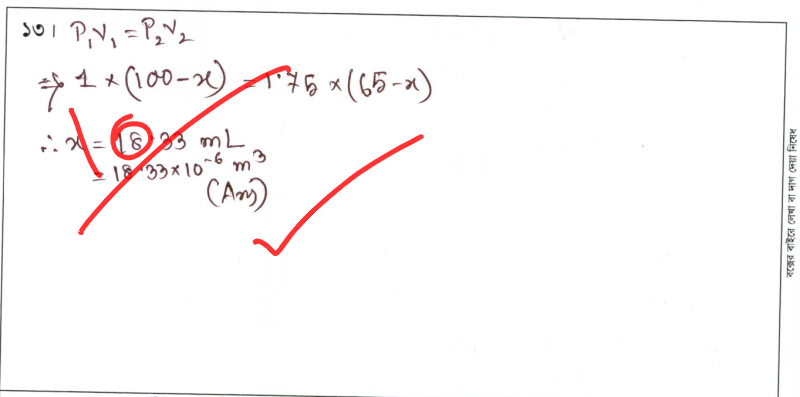 ১৩। P₁V₁ = P₂V₂
⇒ 1 × (100 - x) = 1.75 × (65 - x)
∴ x = 18.33 mL
= 18.33 × 10⁻⁶ m³
(Ans)
বক্সের বাইরে লেখা বা দাগ দেয়া নিষেধ